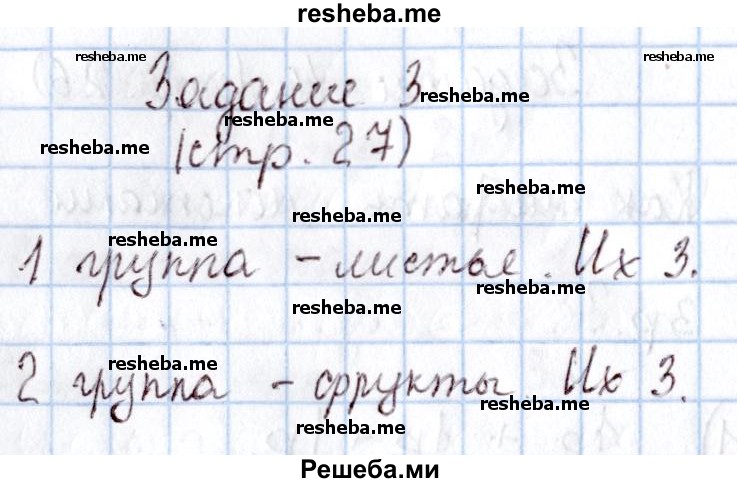 resheba.me
resheba.me resheba.me
Задание 3
resheba.me
resheba.me
(стр. 27)
resheba.me
resheba.me
resheba.me
resheba.me
1 группа – листья. Их 3.
resheba.me
resheba.me
resheba.me
2 группа – фрукты. Их 3.
resheba.me
resheba.me
Решеба.ми